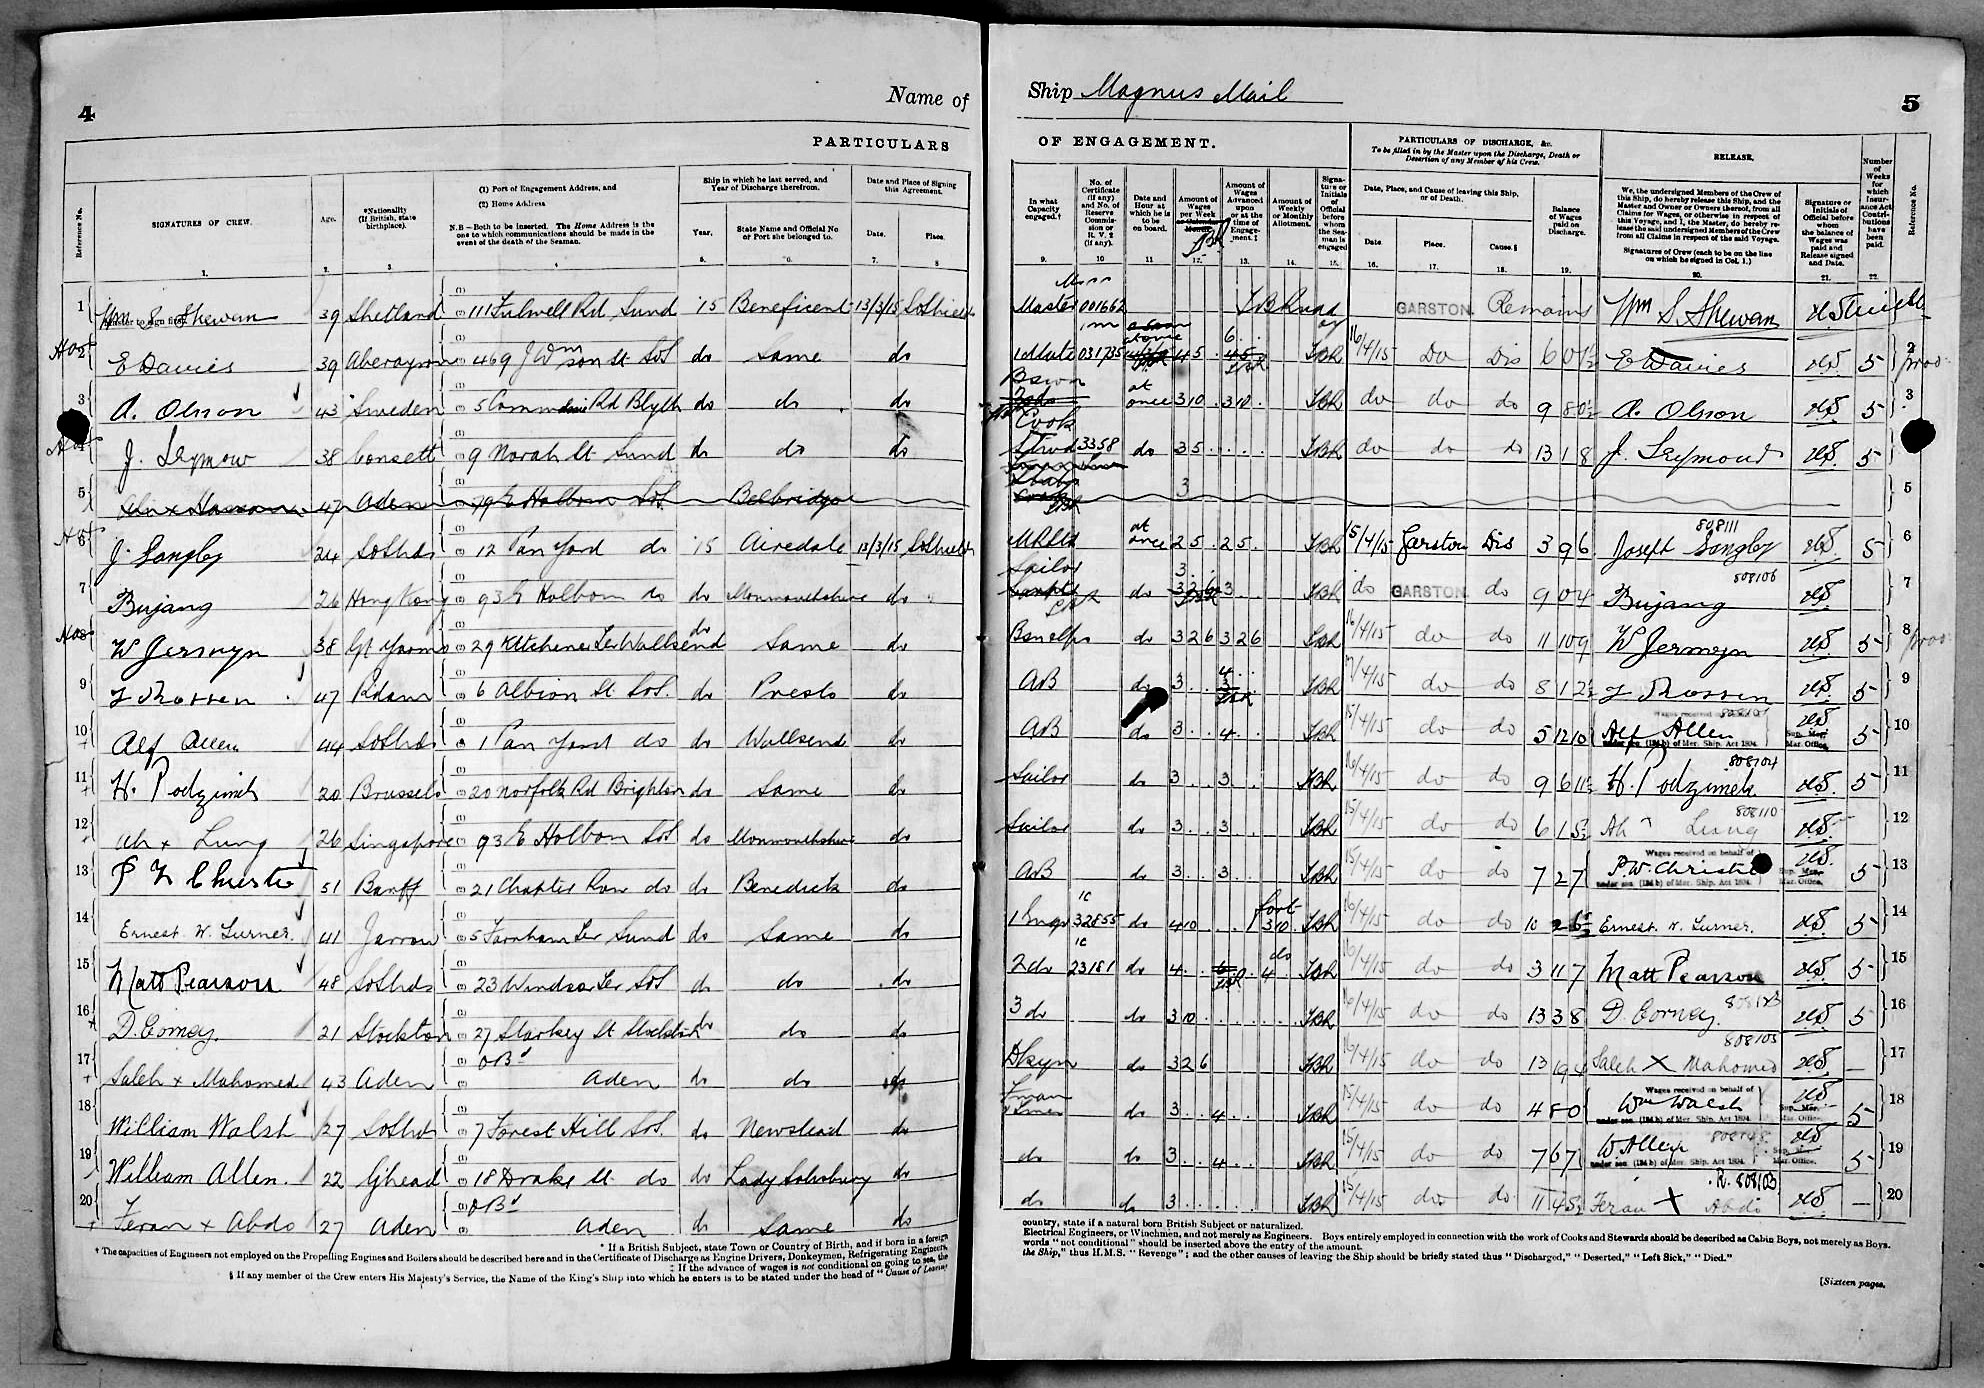 4
Name of
PARTICULARS
Reference No.
SIGNATURES OF CREW.
Age.
*Nationality
(If British, state
birthplace).
(1) Port of Engagement Address, and
(2) Home Address
N.B—Both to be inserted. The Home Address is the
one to which communications should be made in the
event of the death of the Seaman.
Ship in which he last served, and
Year of Discharge therefrom.
Year.
State Name and Official No
or Port she belonged to.
Date and Place of Signing
this Agreement.
Date.
Place.
1. 2. 3. 4 5. 6. 7. 8
1 Wm S. Shewan 39 Shetland 111 Fulwell Rd Sund '15 Beneficent 13/3/15 SoShields
2 E Davies 39 Aberayron 469 St SoS do Same do
3 A. Olsson 43 Sweden 5 Rd Blyth do do do
4 J. Seymour 38 Consett 9 Norah St Sund do do do
5 47 Aden 79 E Holborn SoS. Belbridge
6 J. Langley 24 SoShds 12 Pan Yard do '15 Airedale 13/3/15 SoShields
7 Bujang 26 Hong Kong 93 E Holborn do do Monmouthshire do
8 W Jermyn 38 Gt Yarm 29 Kitchener Ter Wallsend do Same do
9 47 Rdam 6 Albion St SoS. do Presto do
10 Alf Allen 44 SoShds 1 Pan Yard do do Wallsend do
11 H. Podzimek 20 Brussels 20 Norfolk Rd Brighton do Same do
12 Ah x Lung 26 Singapore 93 E Holborn SoS do Monmouthshire do
13 P W Christie 51 Banff 21 Chapter Row do do Benedick do
14 Ernest W. Turner. 41 Jarrow 5 Farnham Ter Sund do Same do
15 Matt Pearson 48 SoShds 23 Windsor Ter SoS do do do
16 D. Corney. 21 Stockton 27 Starkey St Stockton do do do
17 Saleh x Mahomed 43 Aden O Bd Aden do do do
18 William Walsh 27 SoShds 7 Forest Hill SoS. do Newstead do
19 William Allen. 22 Ghead 18 Drake St do do Lady Salisbury do
20 Feran x Abdo 27 Aden O Bd Aden do Same do
* If a British Subject, state Town or Country of Birth, and if born in a foreign
† The capacities of Engineers not employed on the Propelling Engines and Boilers should be described here and in the Certificate of Discharge as Engine Drivers, Donkeymen, Refrigerating Engineers,
‡ If the advance of wages is not conditional on going to sea, the
§ If any member of the Crew enters His Majesty's Service, the Name of the King's Ship into which he enters is to be stated under the head of "Cause of Leaving
Ship Magnus Mail
5
OF ENGAGEMENT.
PARTICULARS OF DISCHARGE, &c.
To be filled in by the Master upon the Discharge, Death or
Desertion of any Member of his Crew.
RELEASE.
In what
Capacity
engaged.†
No. of
Certificate
(if any)
and No. of
Reserve
Commis-
sion or
R. V. 2
(if any).
Date and
Hour at
which he is
to be
on board.
Amount of
Wages
per Week
Amount of
Wages
Advanced
upon
or at the
time of
Engage-
ment.‡
Amount of
Weekly
or Monthly
Allotment.
Signa-
ture or
Initials
of
Official
before
whom
the Sea-
man is
engaged
Date, Place, and Cause of leaving this Ship,
or of Death.
Date.
Place.
Cause.§
Balance
of Wages
paid on
Discharge.
We, the undersigned Members of the Crew of
this Ship, do hereby release this Ship, and the
Master and Owner or Owners thereof, from all
Claims for Wages, or otherwise in respect of
this Voyage, and I, the Master, do hereby re-
lease the said undersigned Members of the Crew
from all Claims in respect of the said Voyage.
Signatures of Crew (each to be on the line
on which he signed in Col. 1.)
Signature or
Initials of
Official before
whom
the balance of
Wages was
paid and
Release signed
and Date.
Number
of
Weeks
for
which
Insur-
ance Act
Contri-
butions
have
been
paid.
Reference No.
9. 10 11 12. 13. 14. 15. 16. 17. 18. 19. 20. 21. 22.
Master 001662 GARSTON Remains Wm S. Shewan
1 Mate 031735 45 16/4/15 Do Dis E Davies 5 2
Bswn at once 310 310 do do do 9 80½ A. Olsson 5 3
Cook Stwd 3358 do 35 do do do 13 18 J. Seymour 5
5
at once 25 25 15/4/15 Garston Dis 3 9 6 808111 Joseph Langley 5 6
Sailor do 3 do GARSTON do 9 04 808106 Bujang 7
do 326 326 16/4/15 do do 11 109 W Jermyn 5 8
AB do 3 4 do do 8 12½ 5 9
AB do 3 4 15/4/15 do do 5 12 10 Alf Allen 5 10
Sailor do 3 3 16/4/15 do do 9 6 11½ 808104 H. Podzimek 5 11
Sailor do 3 3 15/4/15 do do 6 1 5½ 808110 Ah Lung 12
AB do 3 3 15/4/15 do do 7 27 Wages received on behalf of P.W. Christie under sec. (134 b) of Mer. Ship. Act 1894. Sup. Mer. Mar. Office. 5 13
1 Engr 32855 do 410 310 16/4/15 do do 10 Ernest. W. Turner. 5 14
2 do 23181 do 4 4 16/4/15 do do 3 11 7 Matt Pearson 5 15
3 do do 310 16/4/15 do do 13 38 D. Corney. 5 16
Dkyn do 326 16/4/15 do do 13 808105 Saleh X Mahomed — 17
do 3 4 15/4/15 do do 4 80 Wages received on behalf of Wm Walsh under sec. (134 b) of Mer. Ship. Act 1894. Sup. Mer. Mar. Office. 5 18
do do 3 4 15/4/15 do do 7 67 W. Allen under sec. (134 b) of Mer. Ship. Act 1894. Mar. Office. 5 19
do do 3 15/4/15 do do 11 45½ Feran X Abdo — 20
country, state if a natural born British Subject or naturalized.
Electrical Engineers, or Winchmen, and not merely as Engineers. Boys entirely employed in connection with the work of Cooks and Stewards should be described as Cabin Boys, not merely as Boys.
words "not conditional" should be inserted above the entry of the amount.
the Ship," thus H.M.S. "Revenge"; and the other causes of leaving the Ship should be briefly stated thus "Discharged," "Deserted," "Left Sick," "Died."
[Sixteen pages.